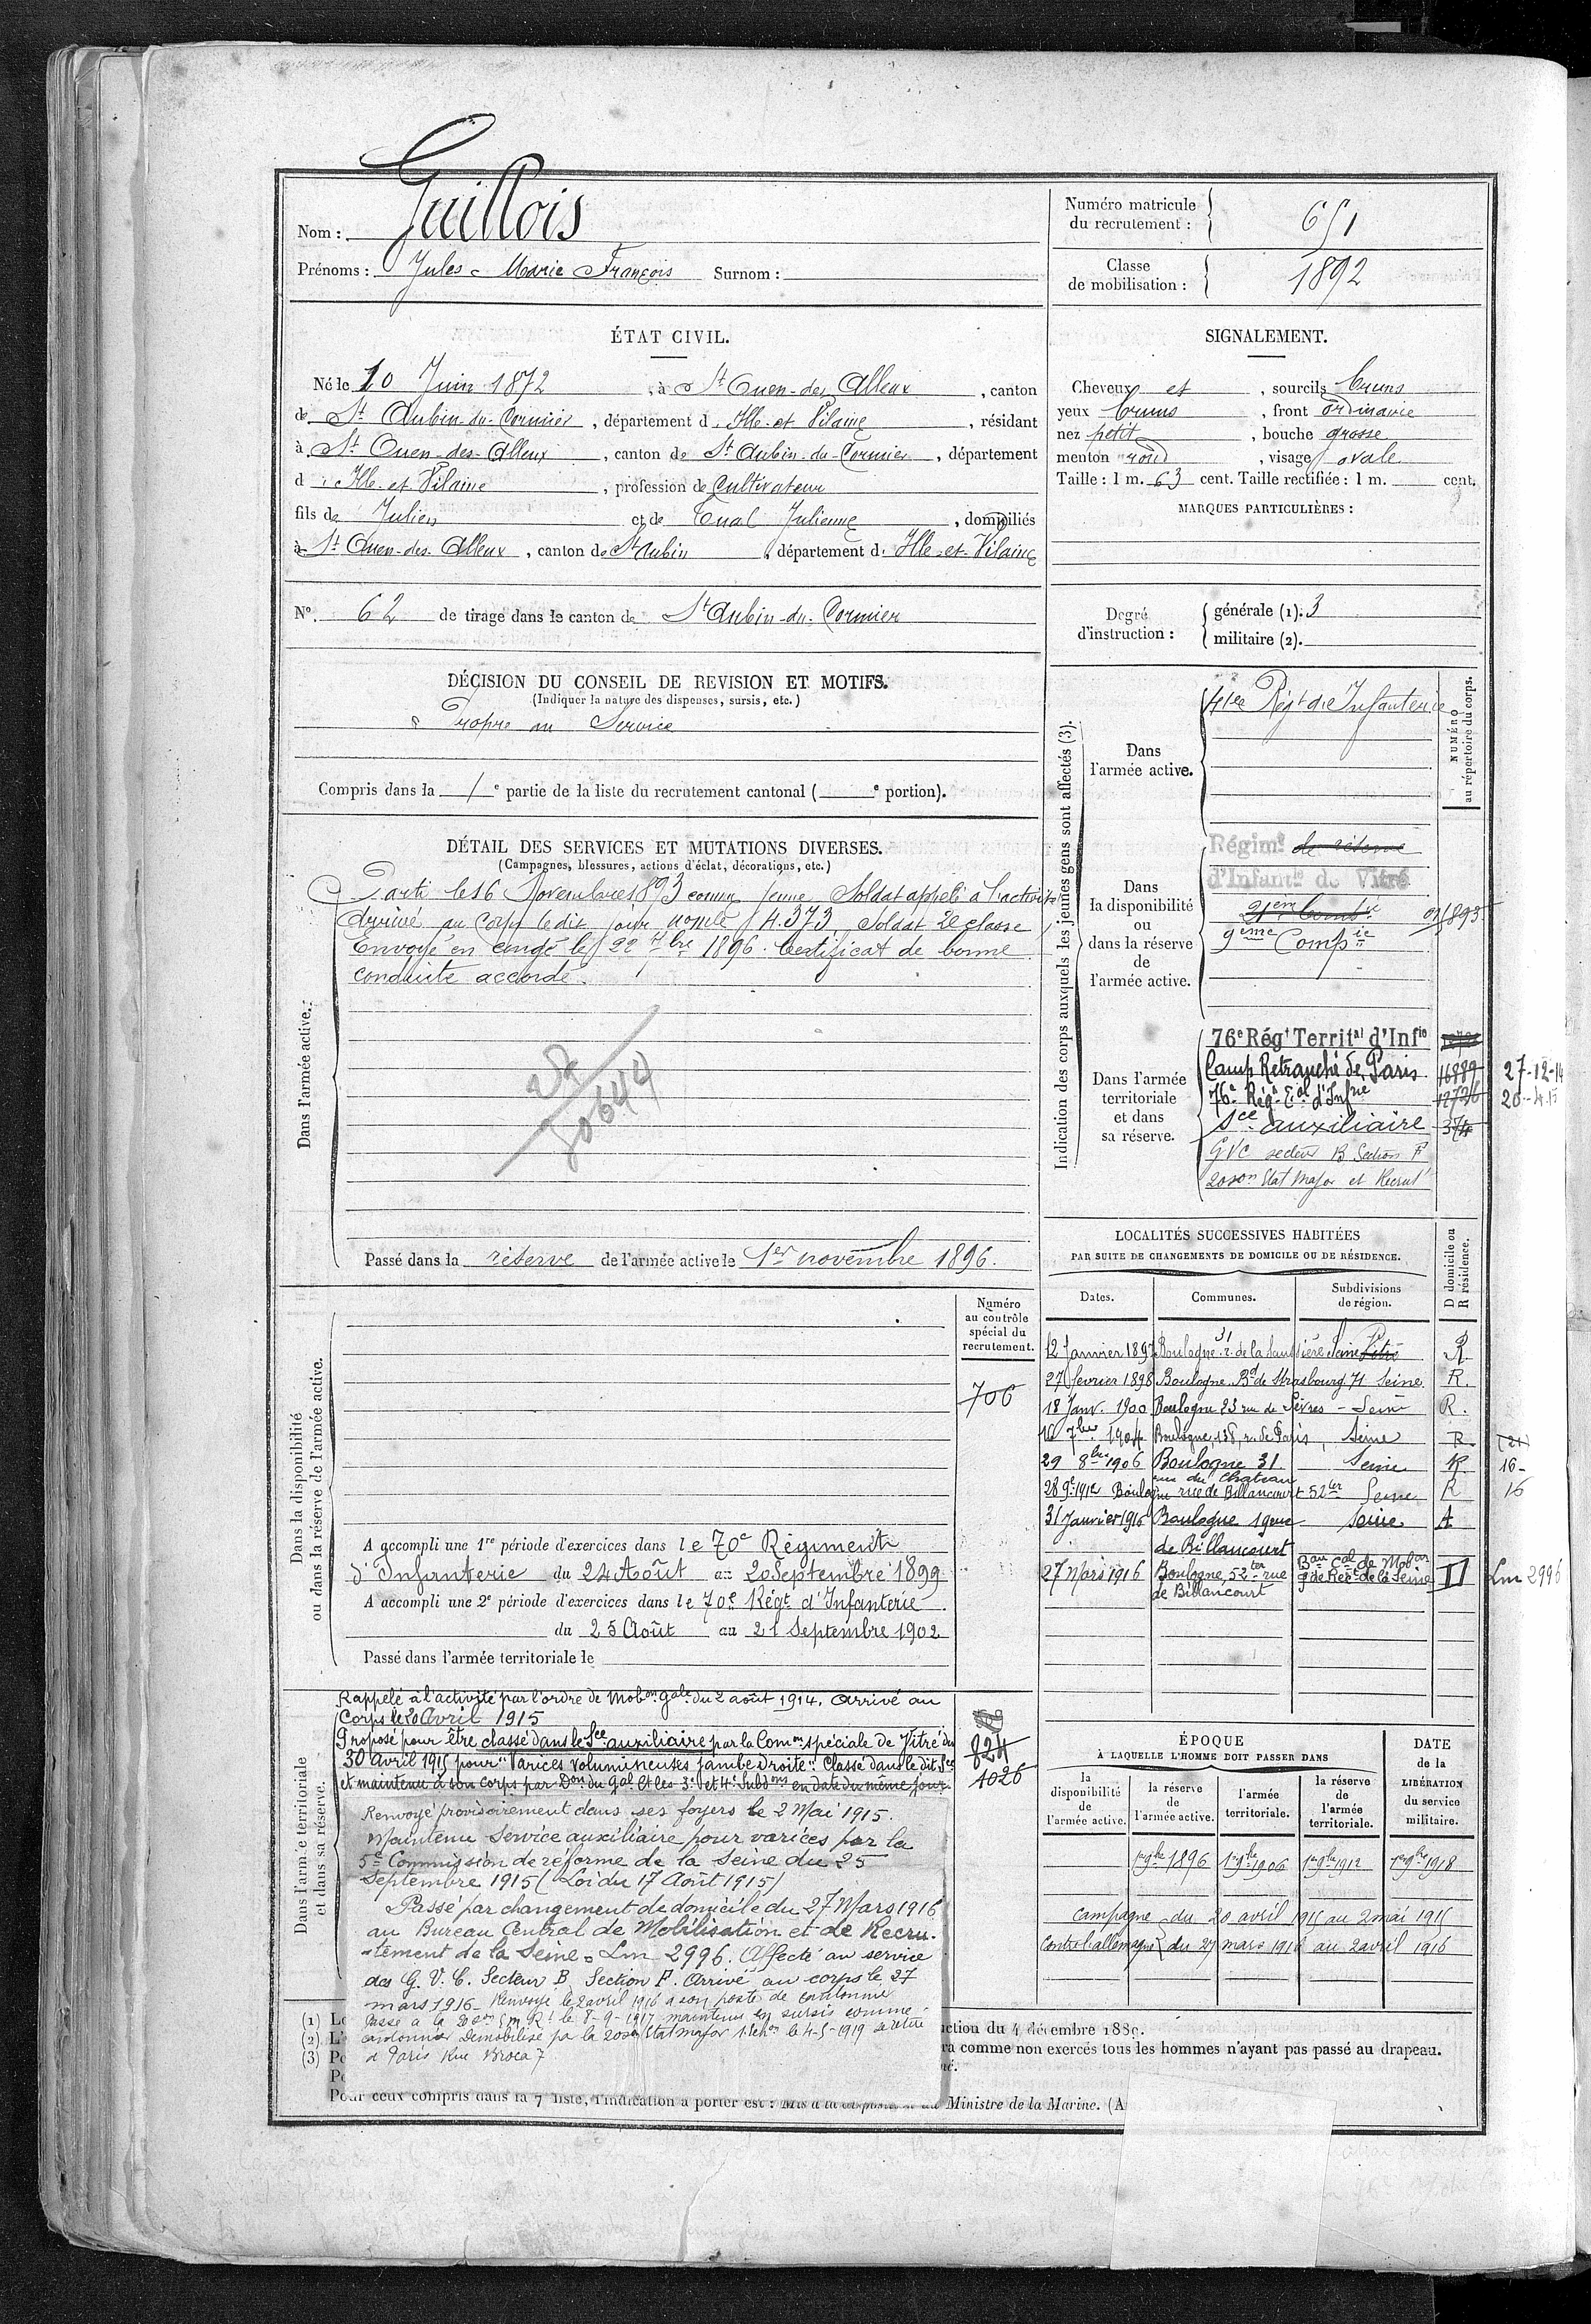 Nom : Guillois
Prénoms : Jules Marie François Surnom :
Numéro matricule du recrutement : 651
Classe de mobilisation : 1892
ÉTAT CIVIL.
Né le 10 Juin 1872, à St Ouen-des-Alleux, canton
de St Aubin-du-Cormier, département d Ille-et-Vilaine, résidant
à St Ouen-des-Alleux, canton de St Aubin-du-Cormier, département
d Ille-et-Vilaine, profession de Cultivateur
fils de Julien et de Tual Julienne, domiciliés
à St Ouen-des-Alleux, canton de St Aubin, département d. Ille-et-Vilaine
SIGNALEMENT.
Cheveux et, sourcils bruns
yeux bruns, front ordinaire
nez petit, bouche grosse
menton rond, visage ovale
Taille : 1 m. 63 cent. Taille rectifiée : 1 m. cent.
MARQUES PARTICULIÈRES :
N°. 62 de tirage dans le canton de St Aubin-du-Cormier
Degré d'instruction :
générale (1). 3
militaire (2).
DÉCISION DU CONSEIL DE REVISION ET MOTIFS.
(Indiquer la nature des dispenses, sursis, etc.)
Propre au Service
Compris dans la 1e partie de la liste du recrutement cantonal ( e portion).
DÉTAIL DES SERVICES ET MUTATIONS DIVERSES.
(Campagnes, blessures, actions d'éclat, décorations, etc.)
Dans l'armée active.
Parti le 16 Novembre 1893 comme jeune Soldat appelé à l'activité
Arrivé au Corps le dit jour nomle 4.373, Soldat 2e classe
Envoyé en congé le 22 7bre 1896. Certificat de bonne
conduite accordé.
Passé dans la réserve de l'armée active le 1er novembre 1896.
Indication des corps auxquels les jeunes gens sont affectés (3).
NUMÉRO au répertoire du corps.
Dans l'armée active.
41ee Régt d'Infanterie
Dans la disponibilité ou dans la réserve de l'armée active.
Régimt de réserve
d'Infantie de Vitré
21em Combie
9ème Compie
Dans l'armée territoriale et dans sa réserve.
76e Régt Territal d'Infie
Camp Retranché de Paris 16889 27-12-14
76e Régt Eal d'Infrie 12726 20-4-15
Sce auxiliaire 374
GVC secteur B Section F
20 son Etat Major et Recrut
LOCALITÉS SUCCESSIVES HABITÉES
PAR SUITE DE CHANGEMENTS DE DOMICILE OU DE RÉSIDENCE.
Dates. Communes. Subdivisions de région. D domicile ou R résidence.
12 Janvier 1897 Boulogne 31 r. de la Saussière Seine Vitré R
27 février 1898 Boulogne. Bd de Strasbourg 71 Seine. R.
18 Janv. 1900 Boulogne 23 rue de Sèvres - Seine R.
16 7bre 1904 Boulogne, 138, r. de Paris, Seine R (21)
29 8bre 1906 Boulogne 31 rue du Chateau Seine R 16-
28 9e 1912 Boulogne rue de Billancourt 52ter Seine R 16
31 Janvier 1916 Boulogne 19 rue de Billancourt Seine A
27 Mars 1916 Boulogne, 52ter rue de Billancourt Bau Cal de Mobon & de Rect de la Seine D Lm 2996
Dans la disponibilité ou dans la réserve de l'armée active.
Numéro au contrôle spécial du recrutement.
706
A accompli une 1re période d'exercices dans le 70e Régiment
d'Infanterie du 24 Août au 20 Septembre 1899
A accompli une 2e période d'exercices dans le 70e Régt d'Infanterie
du 25 Août au 21 Septembre 1902
Passé dans l'armée territoriale le
Dans l'armée territoriale et dans sa réserve.
824
1026
Rappelé à l'activité par l'ordre de Mobon gale du 2 août 1914. Arrivé au
Corps le 20 Avril 1915
Proposé pour être classé dans le Sce auxiliaire par la Comon spéciale de Vitré du
30 avril 1915 pour "Varices volumineuses jambe droite". Classé dans le dit Sce
et maintenu à son corps par Don du Gal Ct les 3e et 4e Subdons en date du même jour.
Renvoyé provisoirement dans ses foyers le 2 Mai 1915.
Maintenu Service auxiliaire pour varices par la
5e Commission de réforme de la Seine du 25
Septembre 1915 (Loi du 17 Août 1915)
Passé par changement de domicile du 27 Mars 1916
au Bureau Central de Mobilisation et de Recru-
-tement de la Seine = Lm 2996. Affecté au service
des G. V. C. Secteur B Section F. Arrivé au corps le 27
mars 1916 - Renvoyé le 2 avril 1916 à son poste de cantonnier
Passé à la 20e son EmRt le 8-9-1917 maintenu en sursis comme
cantonnier Démobilisé par la 20 son Etat major 1 echon le 4-5-1919 se retire
à Paris Rue Broca 7
ÉPOQUE
À LAQUELLE L'HOMME DOIT PASSER DANS
la disponibilité de l'armée active.
la réserve de l'armée active.
l'armée territoriale.
la réserve de l'armée territoriale.
DATE de la LIBÉRATION du service militaire.
1er 9bre 1896 1er 9bre 1906 1er 9bre 1912 1er 9bre 1918
Campagne du 20 avril 1915 au 2 mai 1915
Contre l'allemagne du 27 mars 1916 au 2 avril 1916
(1)
(2)
(3)
ction du 4 décembre 1889.
ra comme non exercés tous les hommes n'ayant pas passé au drapeau.
Pour ceux compris dans la 7e liste, l'indication à porter est : Mis à la disposition du Ministre de la Marine. (A